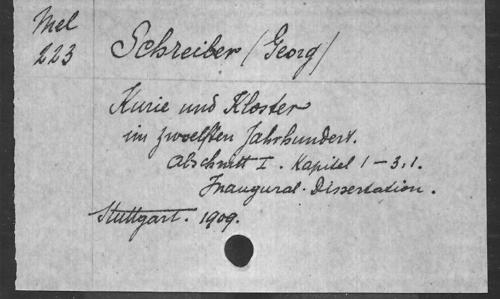 Mel
223
Schreiber (Georg)
Kurie und Kloster
im zwoelften Jahrhundert.
Abschnitt I. Kapitel 1-3.1.
Inaugural-Dissertation.
Stuttgart. 1909.